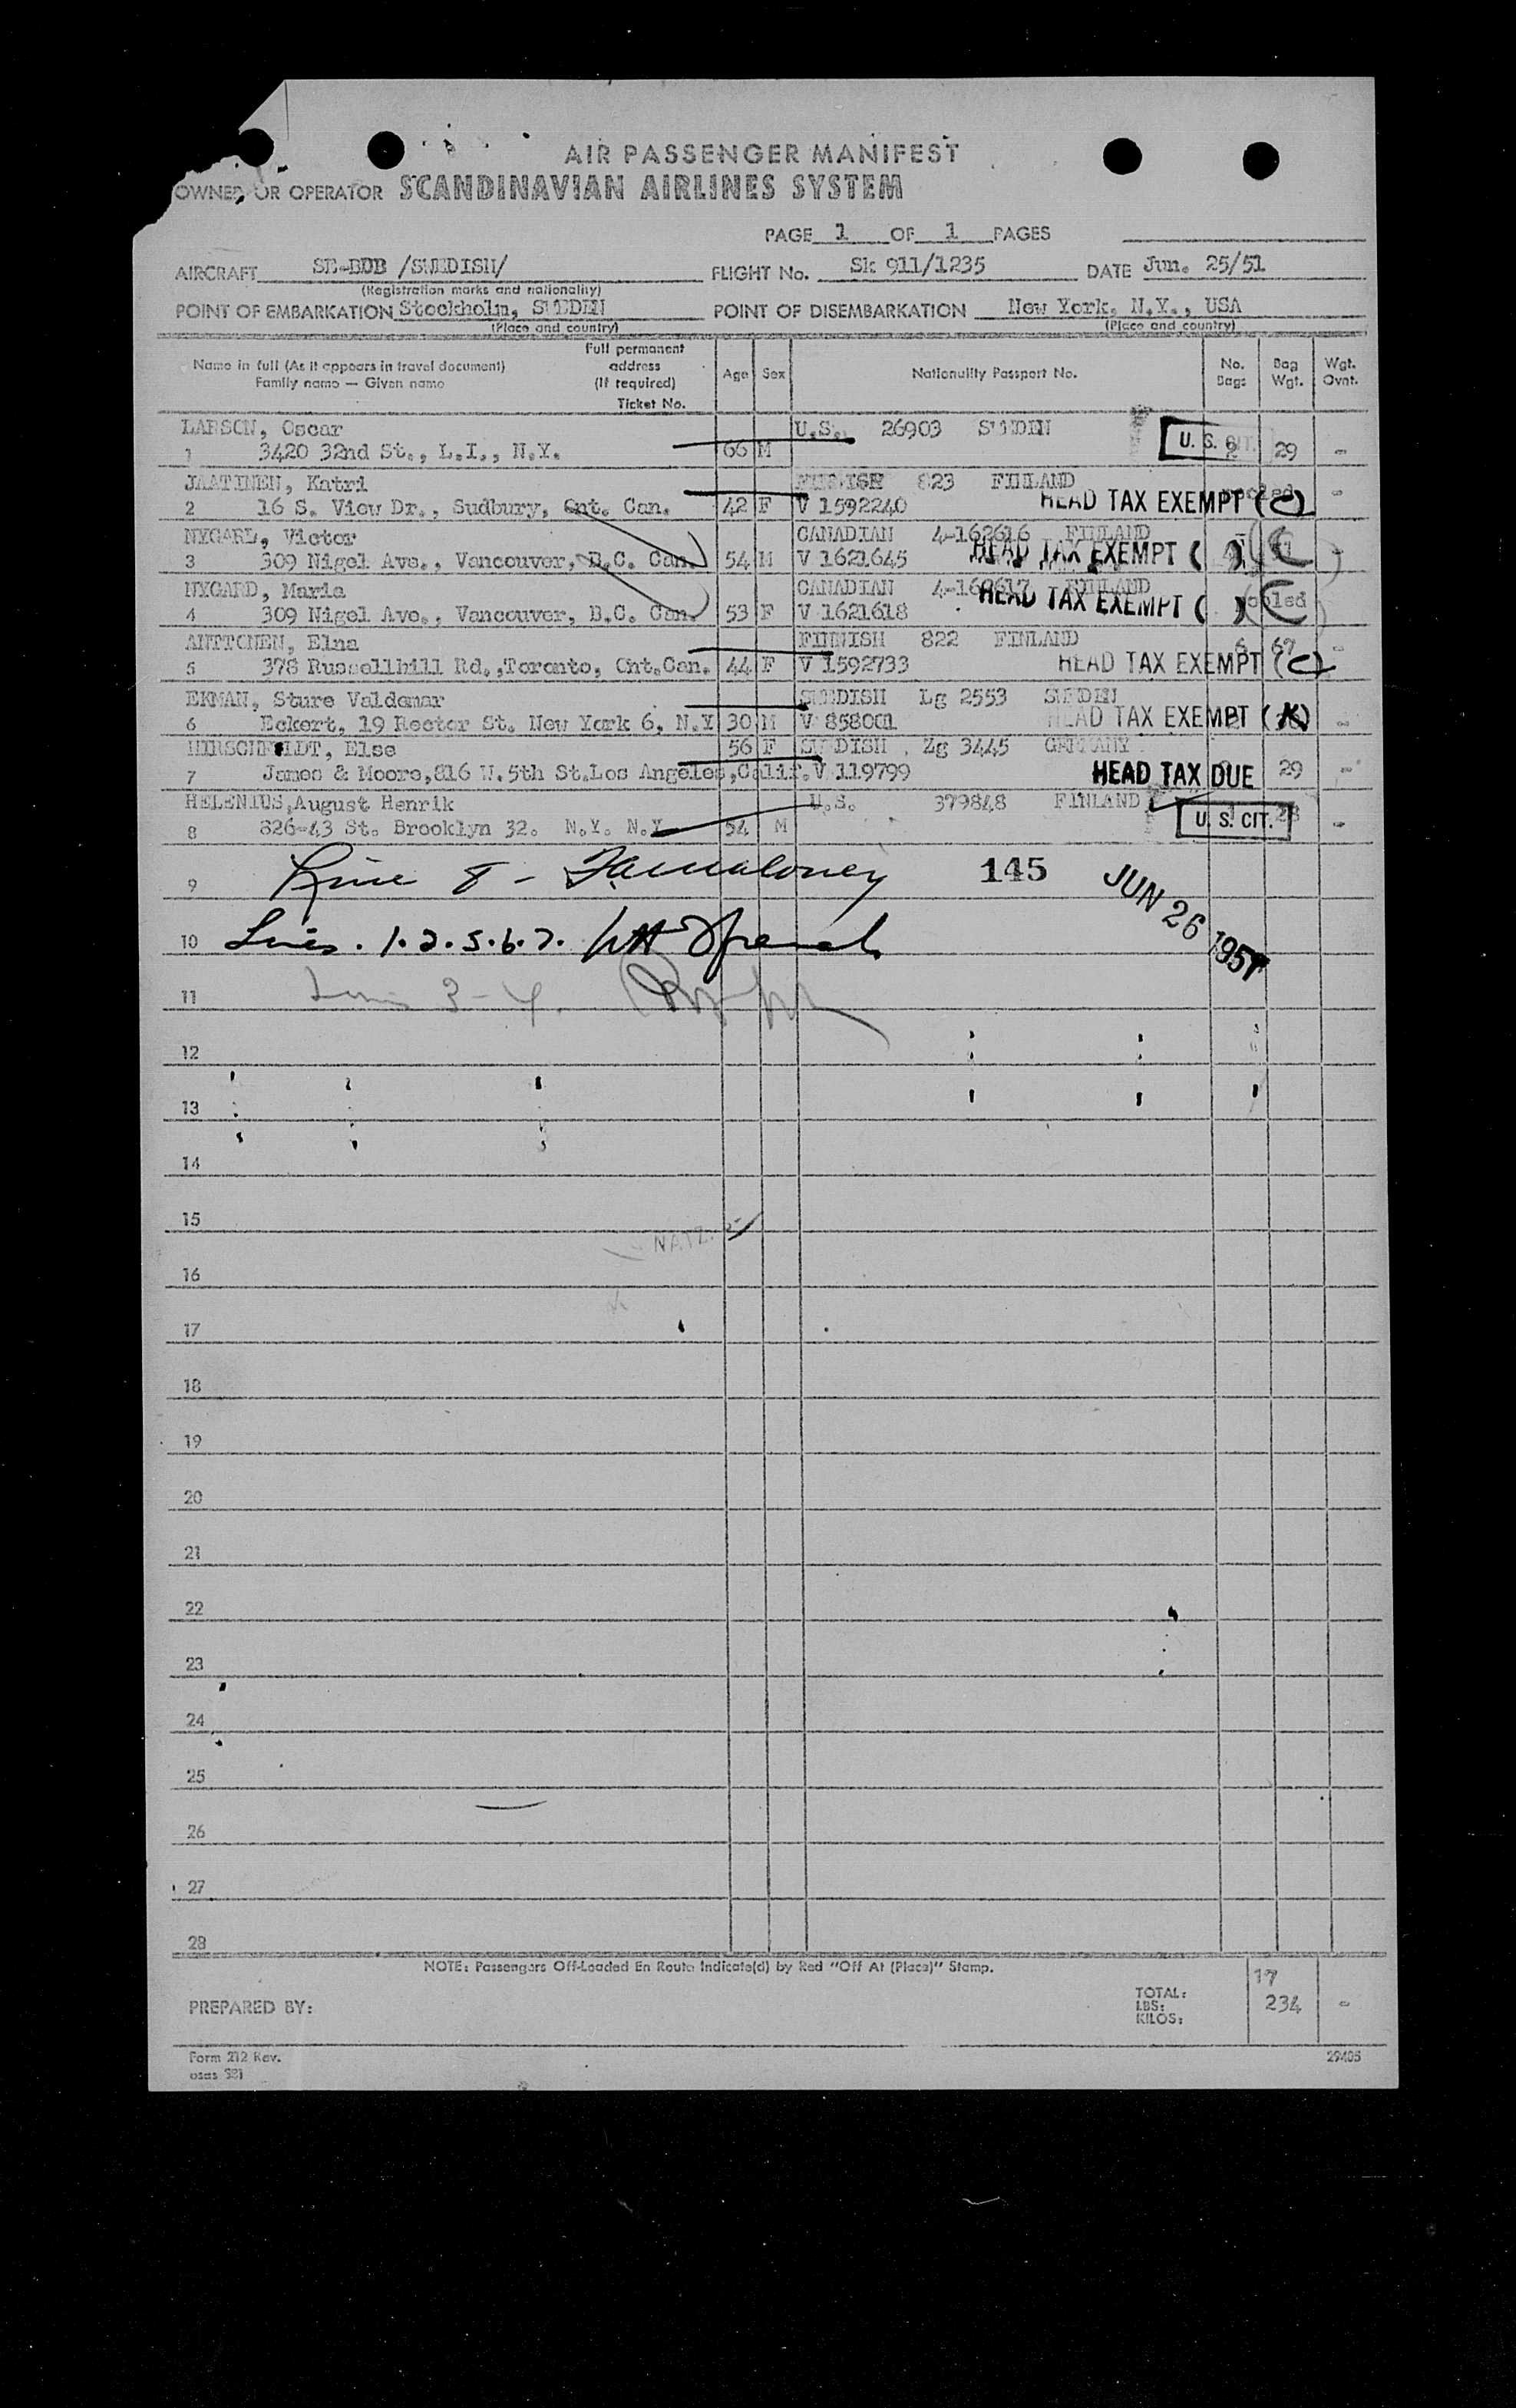 AIR PASSENGER MANIFEST
OWNER OR OPERATOR SCANDINAVIAN AIRLINES SYSTEM
PAGE 1 OF 1 PAGES
AIRCRAFT SE-BDB /SWEDISH/ FLIGHT No. Sk 911/1235 DATE Jun. 25/51
(Registration marks and nationality)
POINT OF EMBARKATION Stockholm, SWEDEN POINT OF DISEMBARKATION New York, N.Y., USA
(Place and country) (Place and country)
Name in full (As it appears in travel document) Family name — Given name Full permanent address (If required) Ticket No. Age Sex Nationality Passport No. No. Bags Bag Wgt. Wgt. Ovnt.
LARSON, Oscar U.S. 26903 SWEDEN U. S. CIT.
1 3420 32nd St., L.I., N.Y. 66 M 2 29 -
JAATINEN, Katri FINNISH 823 FINLAND pooled -
2 16 S. View Dr., Sudbury, Ont. Can. 42 F V 1592240 HEAD TAX EXEMPT (C)
NYGARD, Victor CANADIAN 4-162616 FINLAND
3 309 Nigel Ave., Vancouver, B.C. Can. 54 M V 1621645 HEAD TAX EXEMPT ( ) C -
NYGARD, Maria CANADIAN 4-162617 FINLAND
4 309 Nigel Ave., Vancouver, B.C. Can. 53 F V 1621618 HEAD TAX EXEMPT ( ) pooled C
ANTTONEN, Elna FINNISH 822 FINLAND 6 67 -
5 378 Russellhill Rd.,Toronto, Ont.Can. 44 F V 1592733 HEAD TAX EXEMPT (C)
EKMAN, Sture Valdemar SWEDISH Lg 2553 SWEDEN
6 Eckert, 19 Rector St. New York 6, N.Y 30 M V 858001 HEAD TAX EXEMPT (X) -
HIRSCHFELDT, Else 56 F SWEDISH Zg 3445 GERMANY
7 James & Moore,816 W.5th St.Los Angeles,Calif. V 119799 HEAD TAX DUE 29 -
HELENIUS,August Henrik U.S. 379848 FINLAND
8 826-43 St. Brooklyn 32. N.Y. N.Y. 54 M U. S. CIT. 28 -
9 Line 8 - 145 JUN 26 1951
10 Lines. 1.2.5.6.7.
11 Lines 3-4.
12
13
14
15
NATZ.
16
17
18
19
20
21
22
23
24
25
26
27
28
NOTE: Passengers Off-Loaded En Route Indicate(d) by Red "Off At (Place)" Stamp.
PREPARED BY: TOTAL: LBS: KILOS: 17 234 -
Form 212 Rev. 29405